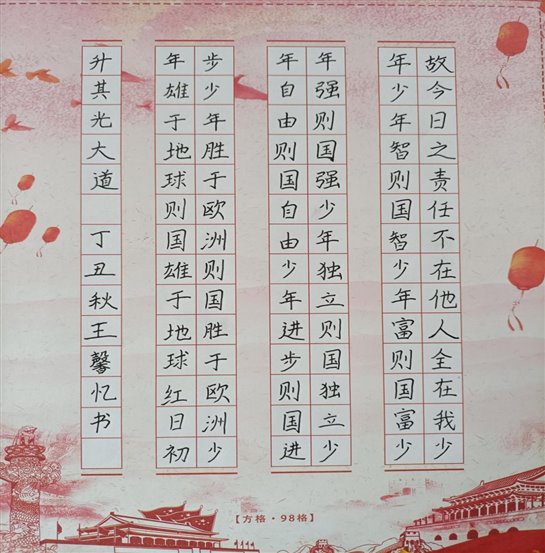 故今日之责任不在他人全在我少
年少年智则国智少年富则国富少
年强则国强少年独立则国独立少
年自由则国自由少年进步则国进
步少年胜于欧洲则国胜于欧洲少
年雄于地球则国雄于地球红日初
升其光大道 丁丑秋王馨忆书
【方格·98格】